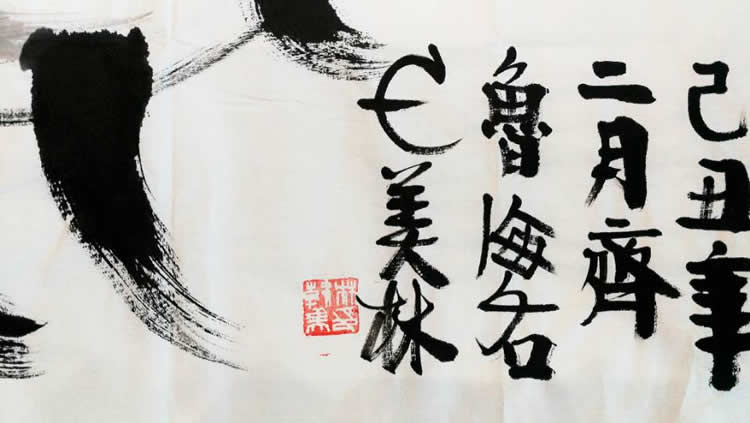 己丑年
二月齊
魯海右
美林